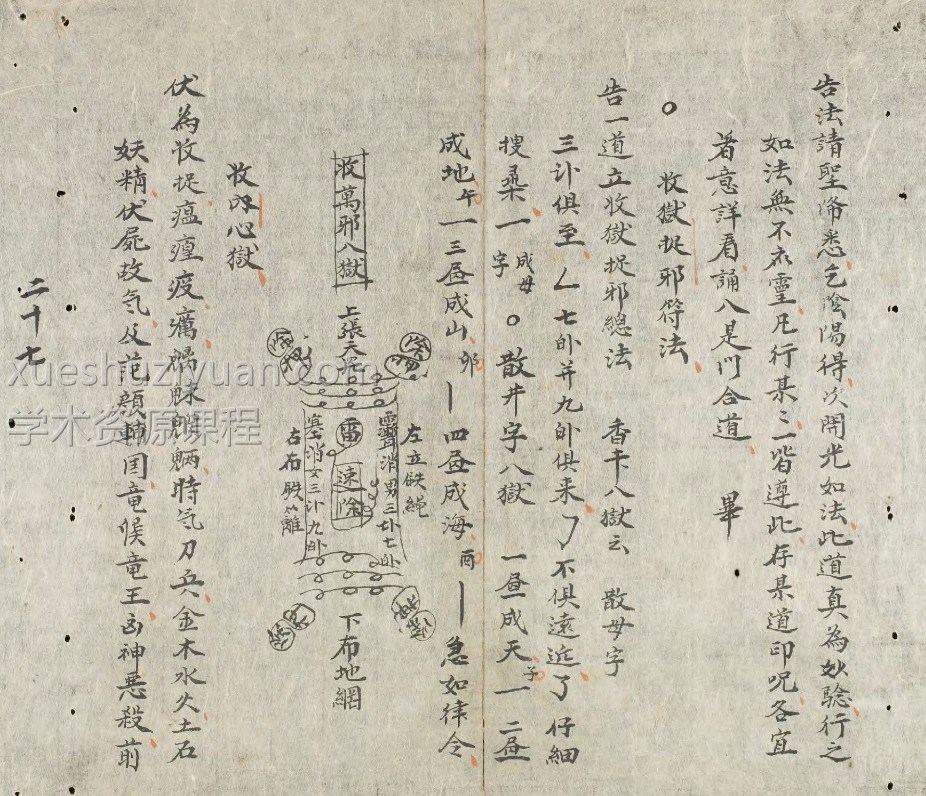 告法請聖俻悉乞陰陽得次開光如法此道真為妙騐行之
如法無不灵凡行某二皆遵此存某道印呪各宜
着意詳看誦八是門合道 畢
○ 收獄捉邪符法
告一道立收獄捉邪總法 香卡八獄云 散母字
三卦俱至 七卦并九卦俱来 不俱遠近了 仔細
搜尋一 成母字 ○ 散井字八獄 一昼成天 子 一 二昼
成地 午 一 三昼成山 卯 一 四昼成海 酉 一 急如律令
收萬邪八獄
上張天羅
左立鉄繩
靈消男三卦七卦
雷
速除
墓消女三卦九卦
右布鉄籬
下布地網
收邪心獄
伏為收捉瘟𤺥疫癘時气刀兵金木水火土石
妖精伏屍故气及犯顛轉囯竜候竜王凶神悪殺前
二十七
xueshuziyuan.com
学术资源课程